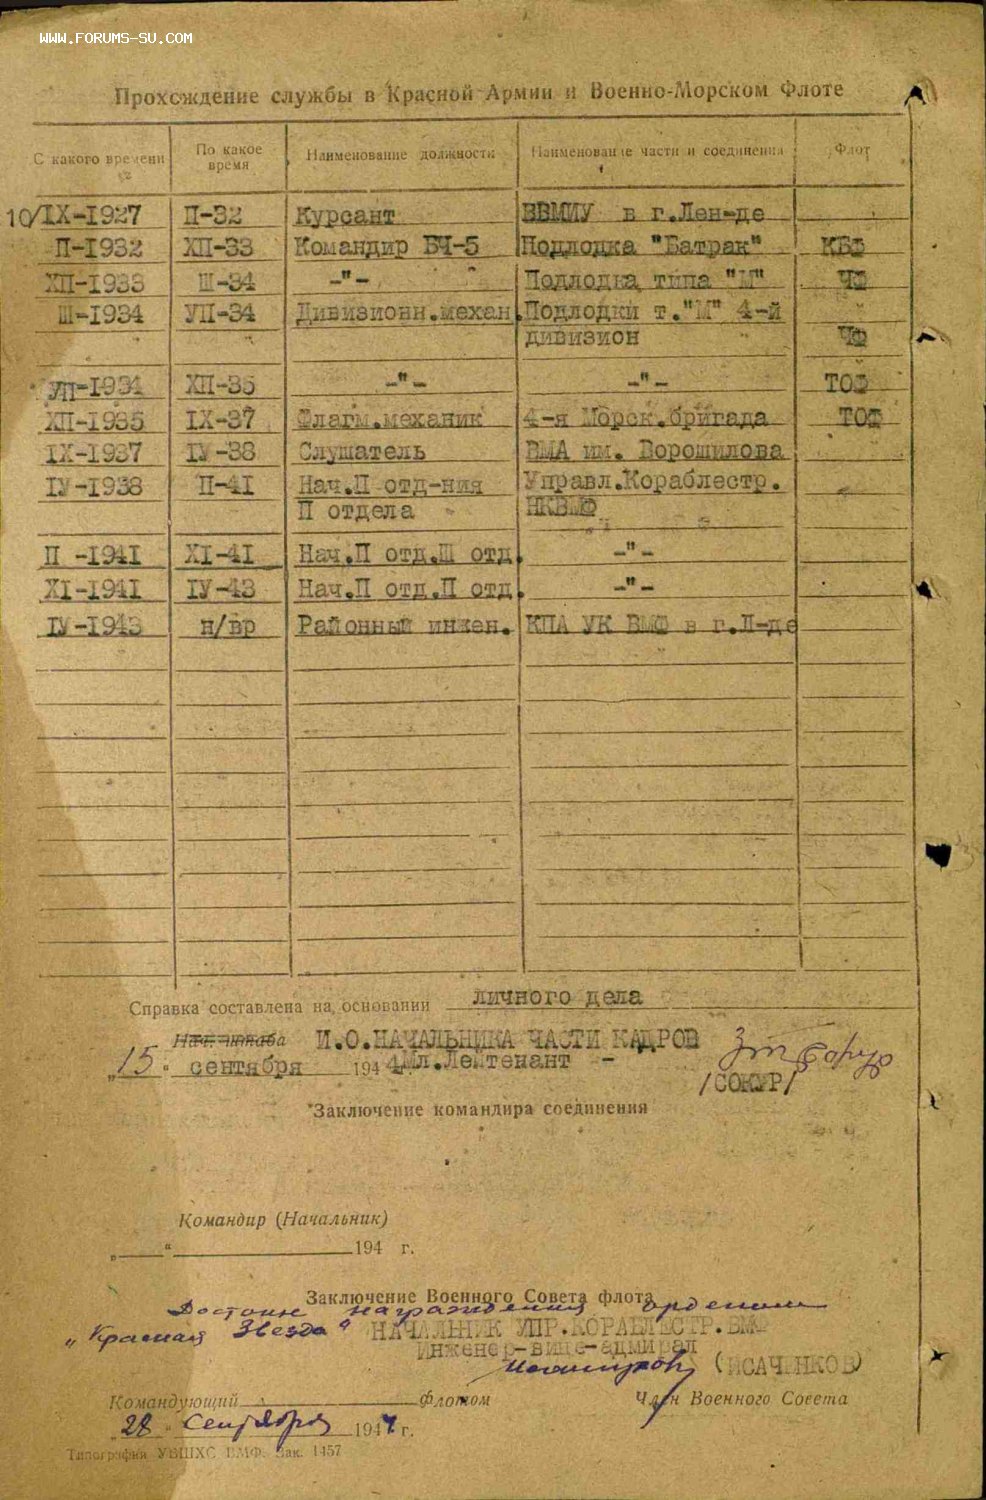 WWW.FORUMS-SU.COM
Прохождение службы в Красной Армии и Военно-Морском Флоте
С какого времени | По какое время | Наименование должности | Наименование части и соединения | Флот
10/IX-1927 | П-32 | Курсант | ВВМИУ в г.Лен-де
П-1932 | ХП-33 | Командир БЧ-5 | Подлодка "Батрак" | КБФ
ХП-1933 | Ш-34 | -"- | Подлодка типа "М" | ЧФ
Ш-1934 | УП-34 | Дивизионн.механ. | Подлодки т."М" 4-й
дивизион | ЧФ
УП-1934 | ХП-35 | -"- | -"- | ТОФ
ХП-1935 | IX-37 | Флагм.механик | 4-я Морск.бригада | ТОФ
IX-1937 | IУ-38 | Слушатель | ВМА им. Ворошилова
IУ-1938 | П-41 | Нач.П отд-ния | Управл.Кораблестр.
П отдела | НКВМФ
П -1941 | XI-41 | Нач.П отд.Ш отд. | -"-
XI-1941 | IУ-43 | Нач.П отд.П отд. | -"-
IУ-1943 | н/вр | Районный инжен. | КПА УК ВМФ в г.Л-де
Справка составлена на основании личного дела
Нач. штаба И.О.НАЧАЛЬНИКА ЧАСТИ КАДРОВ
„15" сентября 1944 Мл.Лейтенант -
/СОКУР/
Заключение командира соединения
Командир (Начальник)
„ " 194 г.
Заключение Военного Совета флота
Достоин награждения орденом
„Красная Звезда" НАЧАЛЬНИК УПР.КОРАБЛЕСТР.ВМФ
Инженер-вице-адмирал
(ИСАЧЕНКОВ)
Командующий Флотом Член Военного Совета
„28" Сентября 1944 г.
Типография УВШХС ВМФ. Зак. 1457